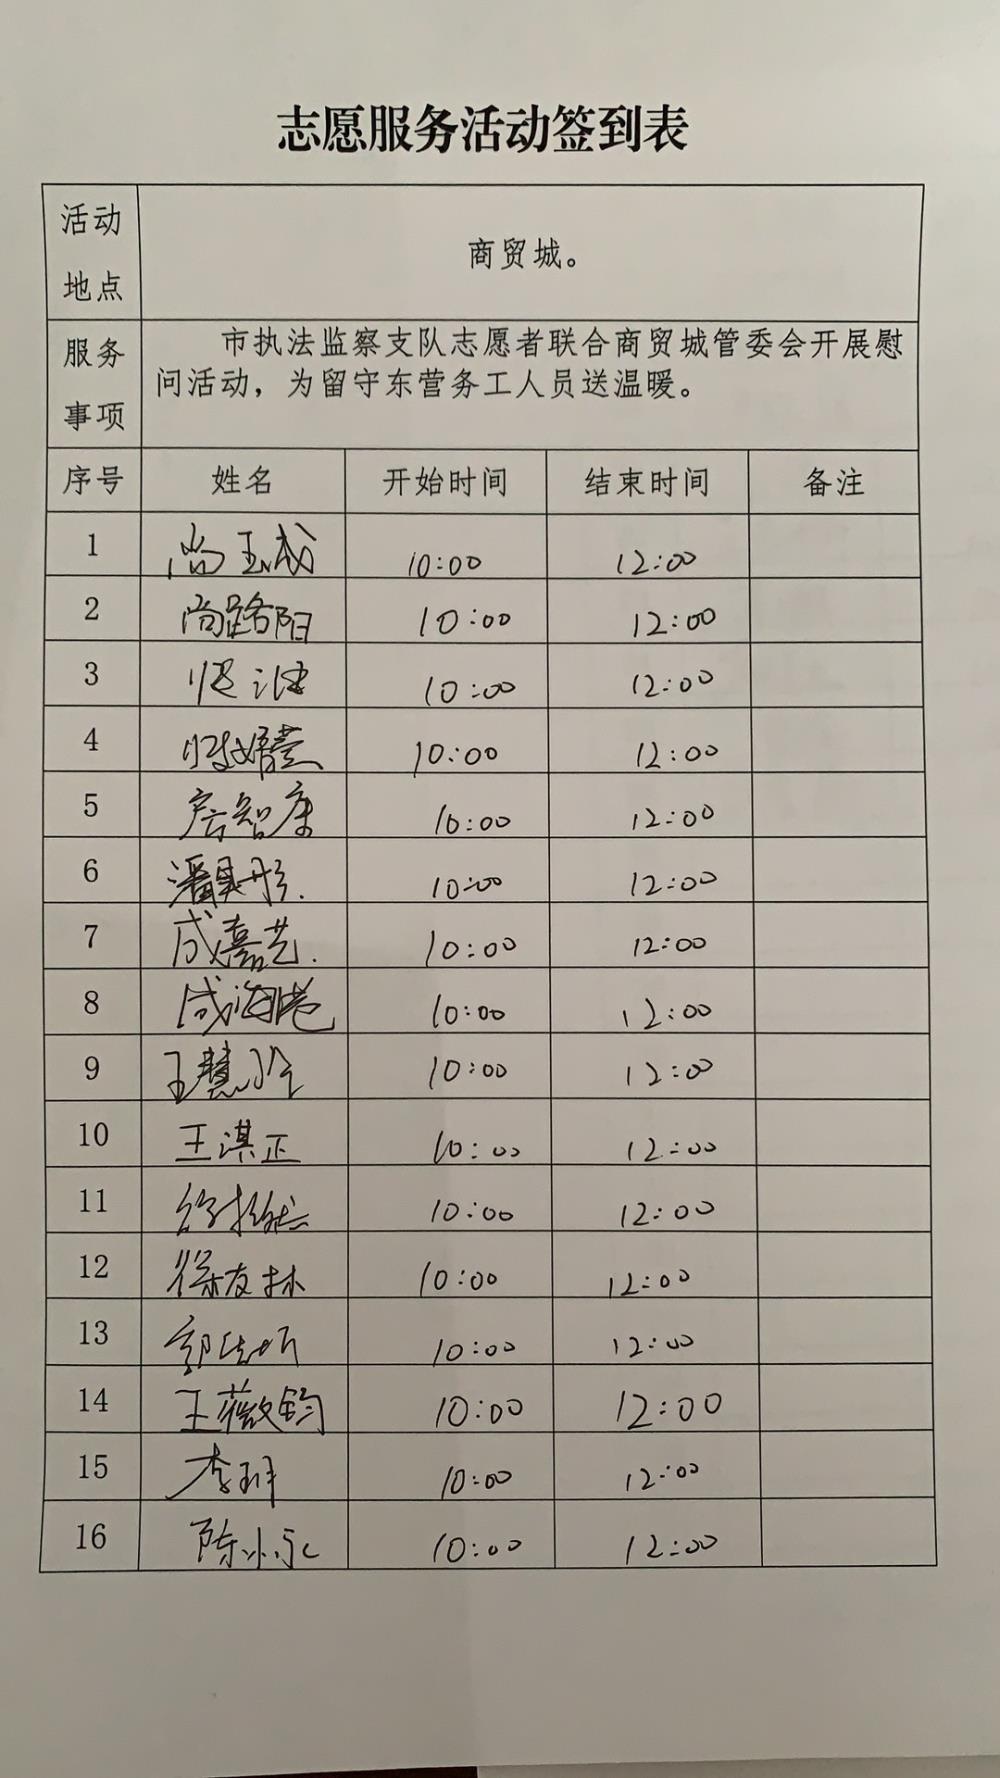 志愿服务活动签到表
活动地点
商贸城。
服务事项
市执法监察支队志愿者联合商贸城管委会开展慰
问活动，为留守东营务工人员送温暖。
序号 姓名 开始时间 结束时间 备注
1 尚玉成 10:00 12:00
2 尚路阳 10:00 12:00
3 10:00 12:00
4 10:00 12:00
5 房智康 10:00 12:00
6 潘昊彤. 10:00 12:00
7 成嘉艺. 10:00 12:00
8 成海港 10:00 12:00
9 王慧玲 10:00 12:00
10 王淇正 10:00 12:00
11 10:00 12:00
12 徐友林 10:00 12:00
13 10:00 12:00
14 王薇钧 10:00 12:00
15 李玥 10:00 12:00
16 陈小永 10:00 12:00